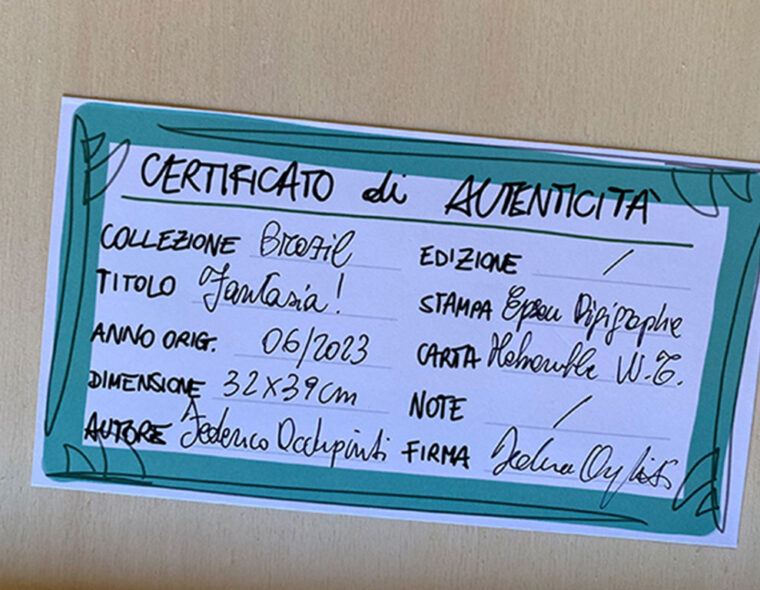 CERTIFICATO di AUTENTICITÀ
COLLEZIONE Brazil
TITOLO Fantasia!
ANNO ORIG. 06/2023
DIMENSIONE 32X39cm
AUTORE Federico Occhipinti
EDIZIONE /
STAMPA Epson Digigraphie
CARTA W.T.
NOTE /
FIRMA